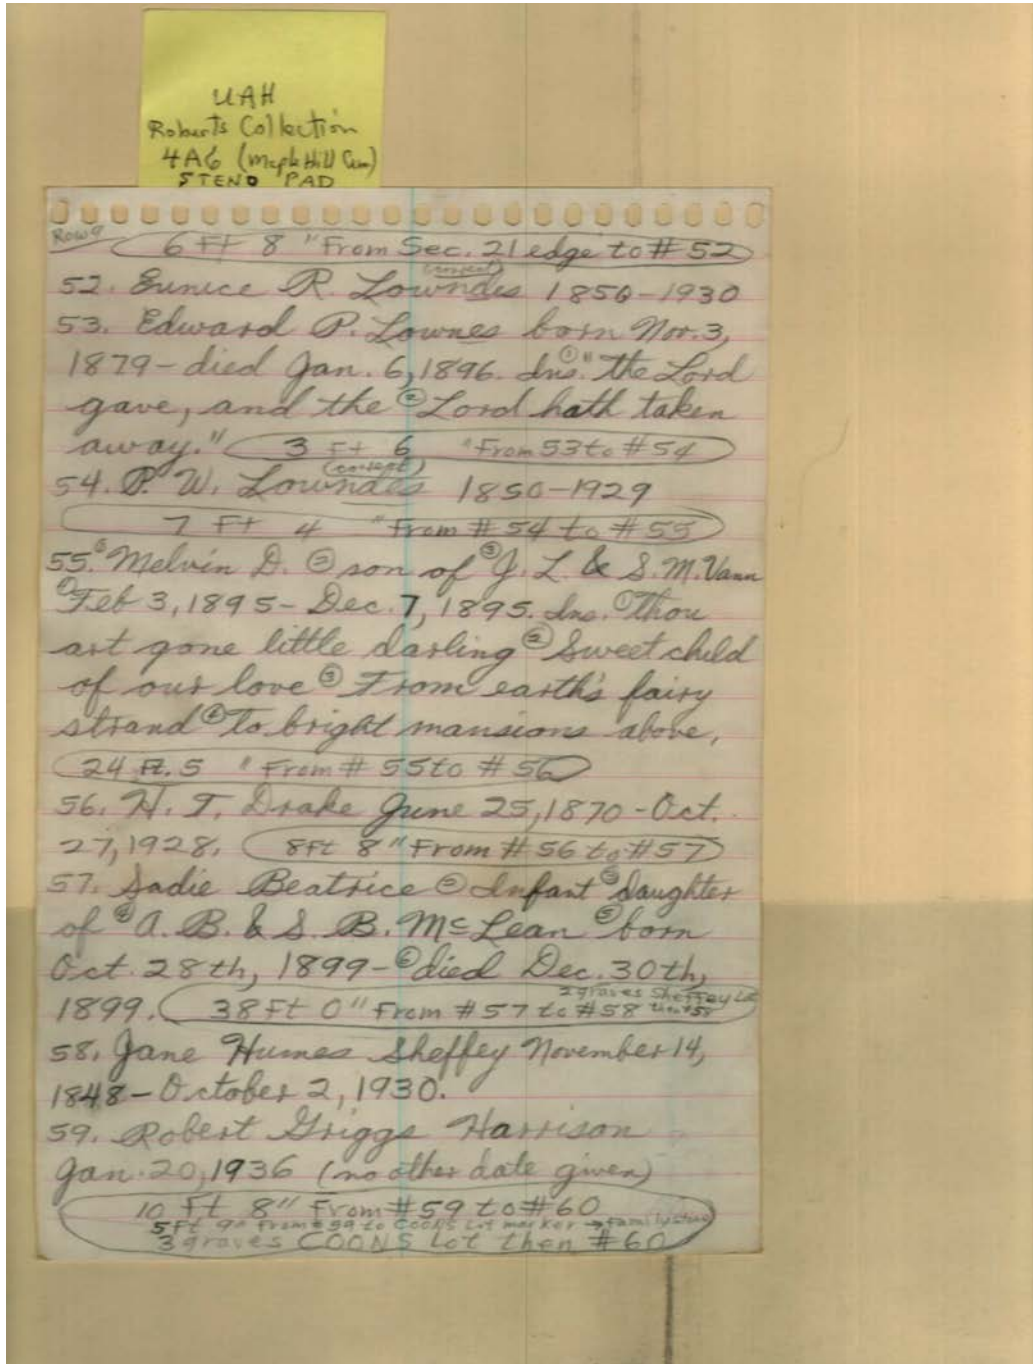 UAH
Roberts Collection
4A6 (Maple Hill Cem)
STENO PAD
Row 9
6 Ft 8 "From Sec. 21 edge to #52
(correct)
52. Eunice R. Lowndes 1850-1930
53. Edward P. Lownes born Nov. 3,
1879-died Jan. 6, 1896. Ins. ① "the Lord
gave, and the ② Lord hath taken
away." 3 Ft 6 "From 53 to #54
(correct)
54. P. W. Lowndes 1850-1929
7 Ft 4 "From #54 to #55
55. ① Melvin D. ② son of ③ J. L. & S. M. Vann
Feb 3, 1895-Dec. 7, 1895. Ins. ① Thou
art gone little darling ② Sweet child
of our love ③ From earth's fairy
strand ④ To bright mansions above,
24 Ft. 5 " From # 55 to #56
56. H. T. Drake June 25, 1870-Oct.
27, 1928. 8ft 8" From #56 to #57
57. Sadie Beatrice ② Infant ③ daughter
of ④ A. B. & S. B. McLean ⑤ born
Oct. 28th, 1899-⑥ died Dec. 30th,
2 graves Sheffey Lot
1899. 38 Ft 0" From #57 to #58 then #58
58. Jane Humes Sheffey November 14,
1848-October 2, 1930.
59. Robert Griggs Harrison
Jan. 20, 1936 (no other date given)
10 Ft 8" From #59 to #60
5 Ft 9" From #59 to COONS Lot marker → family stone
3 graves COONS Lot then #60